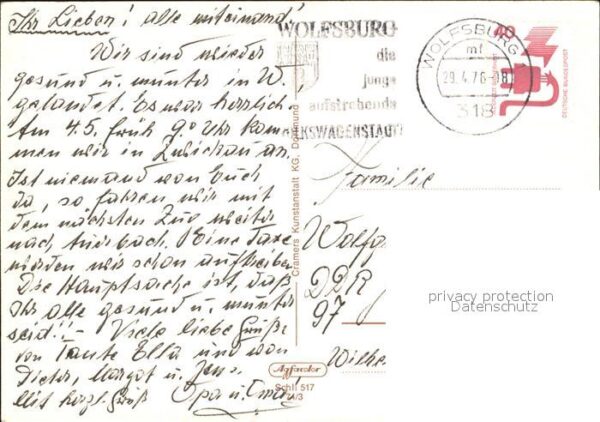 Ihr Lieben! alle miteinand!
Wir sind wieder
gesund u. munter in W.
gelandet. Es war herrlich.
Am 4.5. früh 9⁰⁰ Uhr kom
men wir in Zwickau an.
Ist niemand von Euch
da, so fahren wir mit
dem nächsten Zug weiter
nach Auerbach. Eine Taxe
werden wir schon auftreiben
Die Hauptsache ist, daß
Ihr alle gesund u. munter
seid!! - Viele liebe Grüße
von Tante Ella und von
Dieter, Margot u. Jens.
Mit herzl. Gruß Opa u. Oma
WOLFSBURG
die
junge
aufstrebende
VOLKSWAGENSTADT
WOLFSBURG
mf
29.4.76-08
318
40
DEUTSCHE BUNDESPOST
Cramers Kunstanstalt KG, Dortmund
Familie
Wolfg
DDR
97
Wilhe
privacy protection
Datenschutz
Agfacolor
Schli 517
74/3